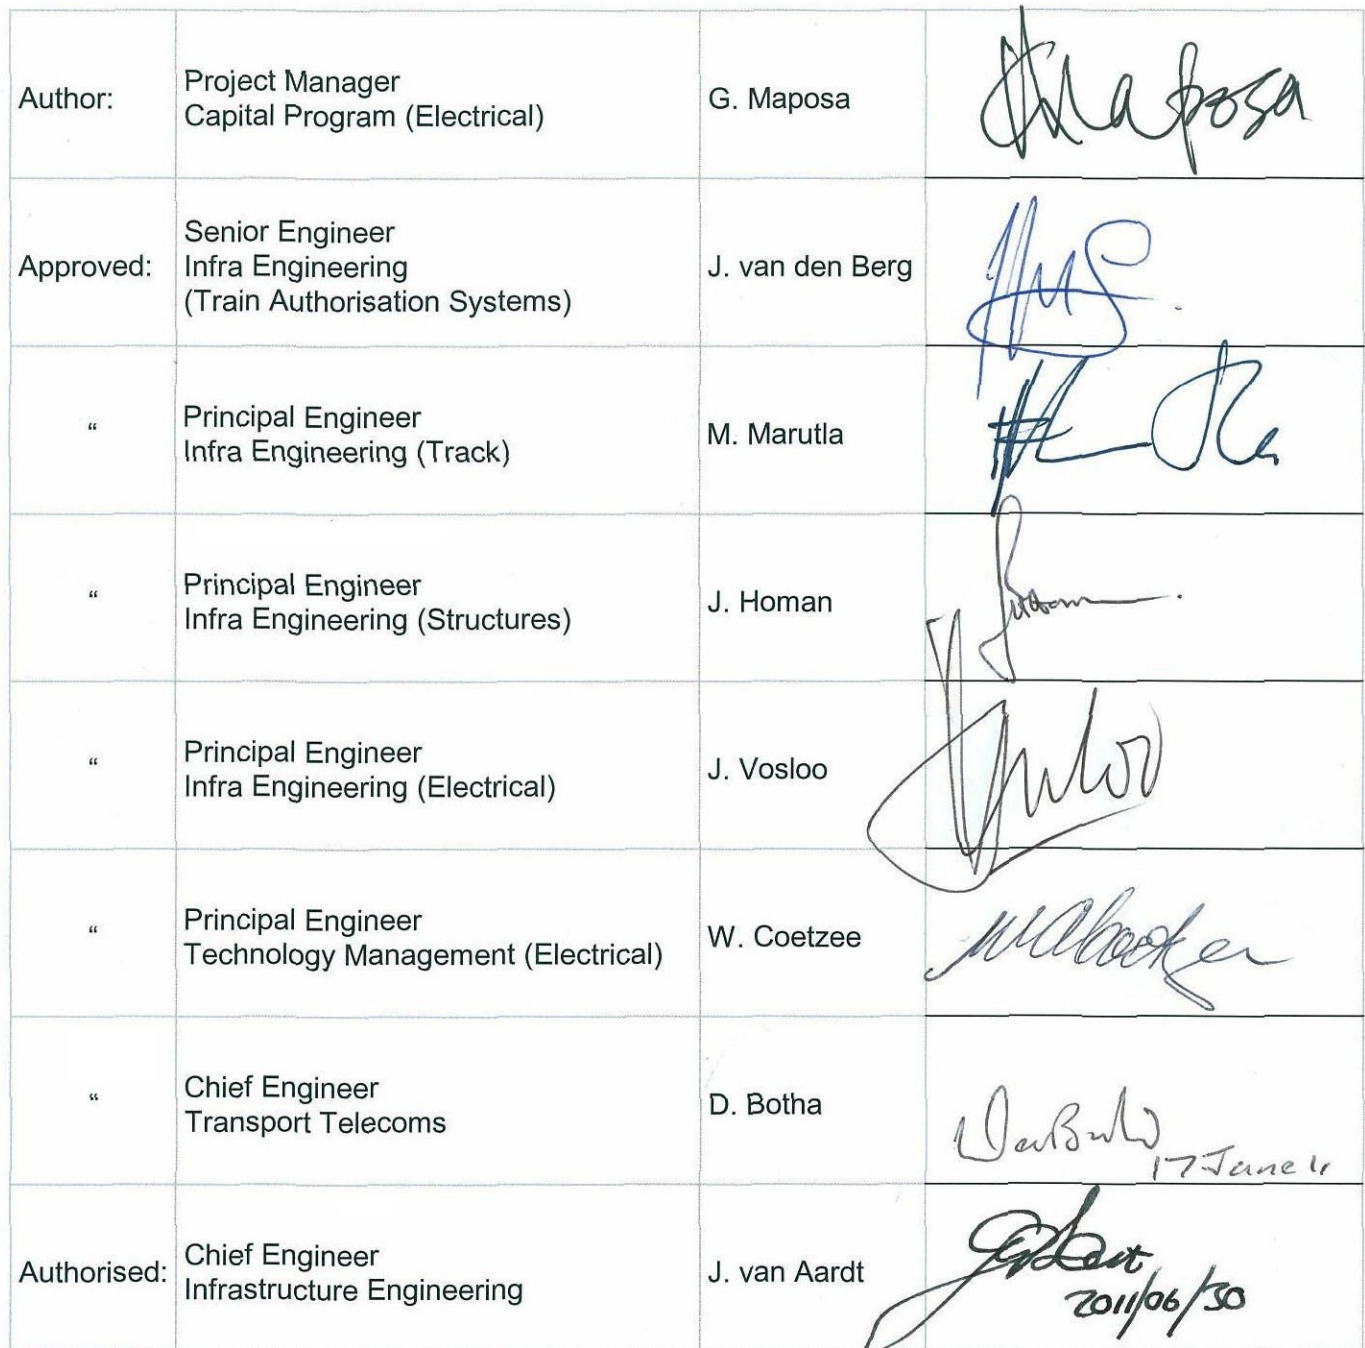 Author:
Project Manager
Capital Program (Electrical)
G. Maposa
Maposa
Approved:
Senior Engineer
Infra Engineering
(Train Authorisation Systems)
J. van den Berg
“
Principal Engineer
Infra Engineering (Track)
M. Marutla
“
Principal Engineer
Infra Engineering (Structures)
J. Homan
“
Principal Engineer
Infra Engineering (Electrical)
J. Vosloo
“
Principal Engineer
Technology Management (Electrical)
W. Coetzee
“
Chief Engineer
Transport Telecoms
D. Botha
17 June 11
Authorised:
Chief Engineer
Infrastructure Engineering
J. van Aardt
2011/06/30